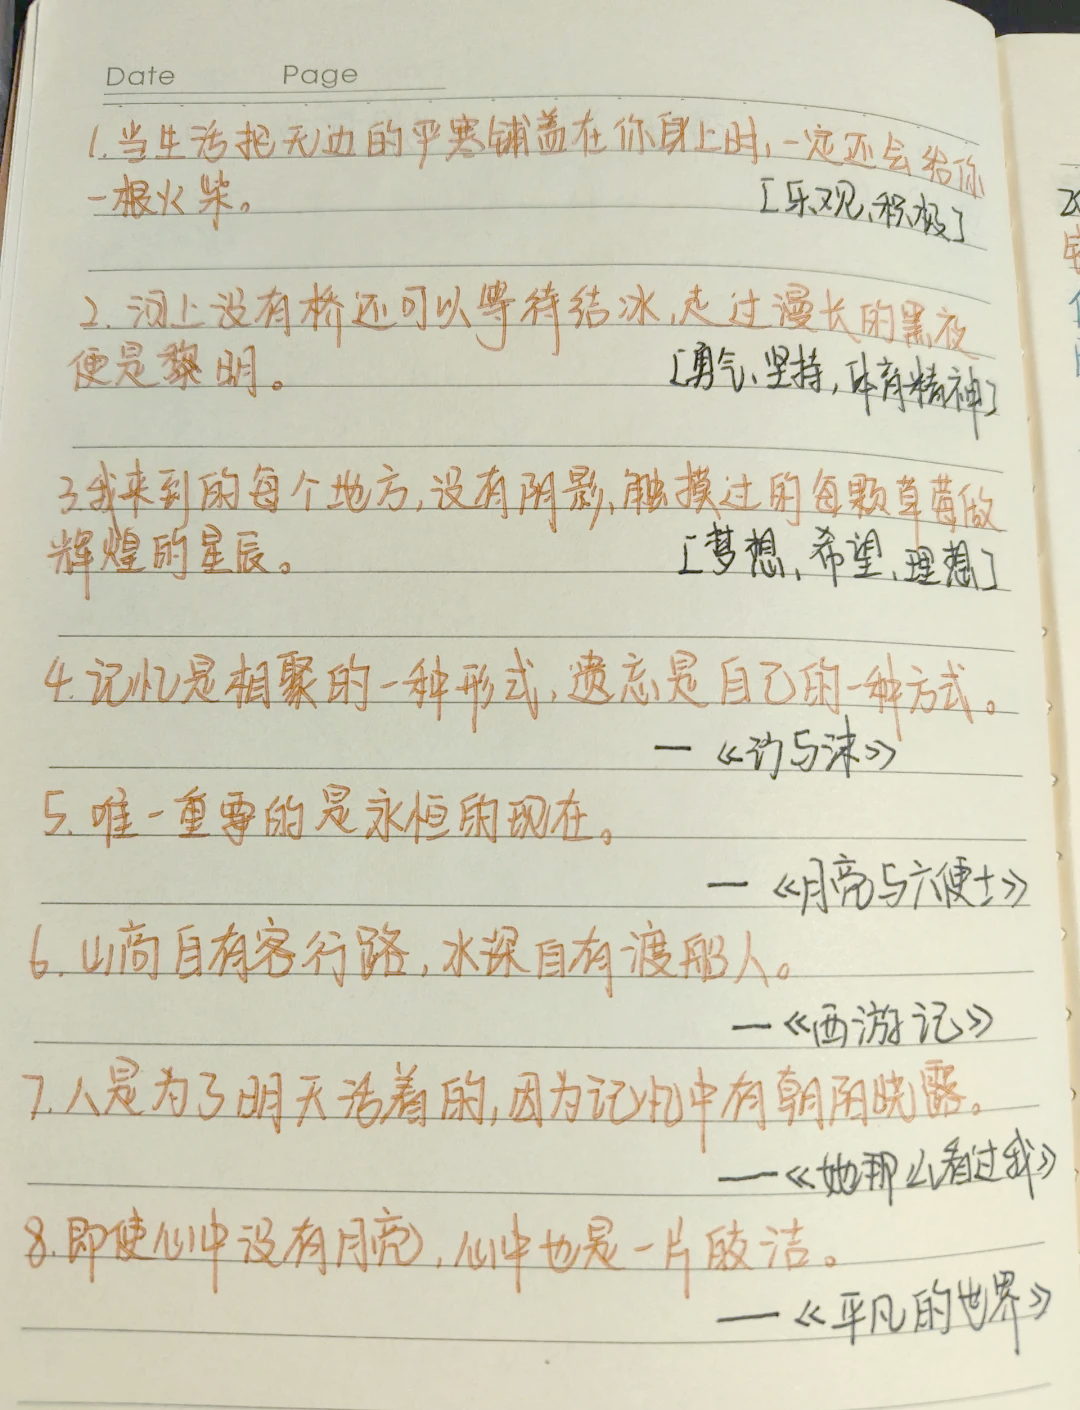 Date Page
1.当生活把无边的严寒铺盖在你身上时,一定还会给你
一根火柴。
[乐观、积极]
2.河上没有桥还可以等待结冰,走过漫长的黑夜
便是黎明。
[勇气、坚持,体育精神]
3.我来到的每个地方,没有阴影,触摸过的每颗草莓做
辉煌的星辰。
[梦想、希望、理想]
4.记忆是相聚的一种形式,遗忘是自己的一种方式。
—《沙与沫》
5.唯一重要的是永恒的现在。
—《月亮与六便士》
6.山高自有客行路,水深自有渡船人。
—《西游记》
7.人是为了明天活着的,因为记忆中有朝阳晓露。
—《她那么看过我》
8.即使心中没有月亮,心中也是一片皎洁。
—《平凡的世界》